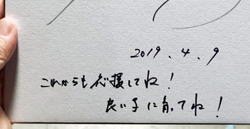 2019.4.9
これからも応援してね!
良い子に育ってね!